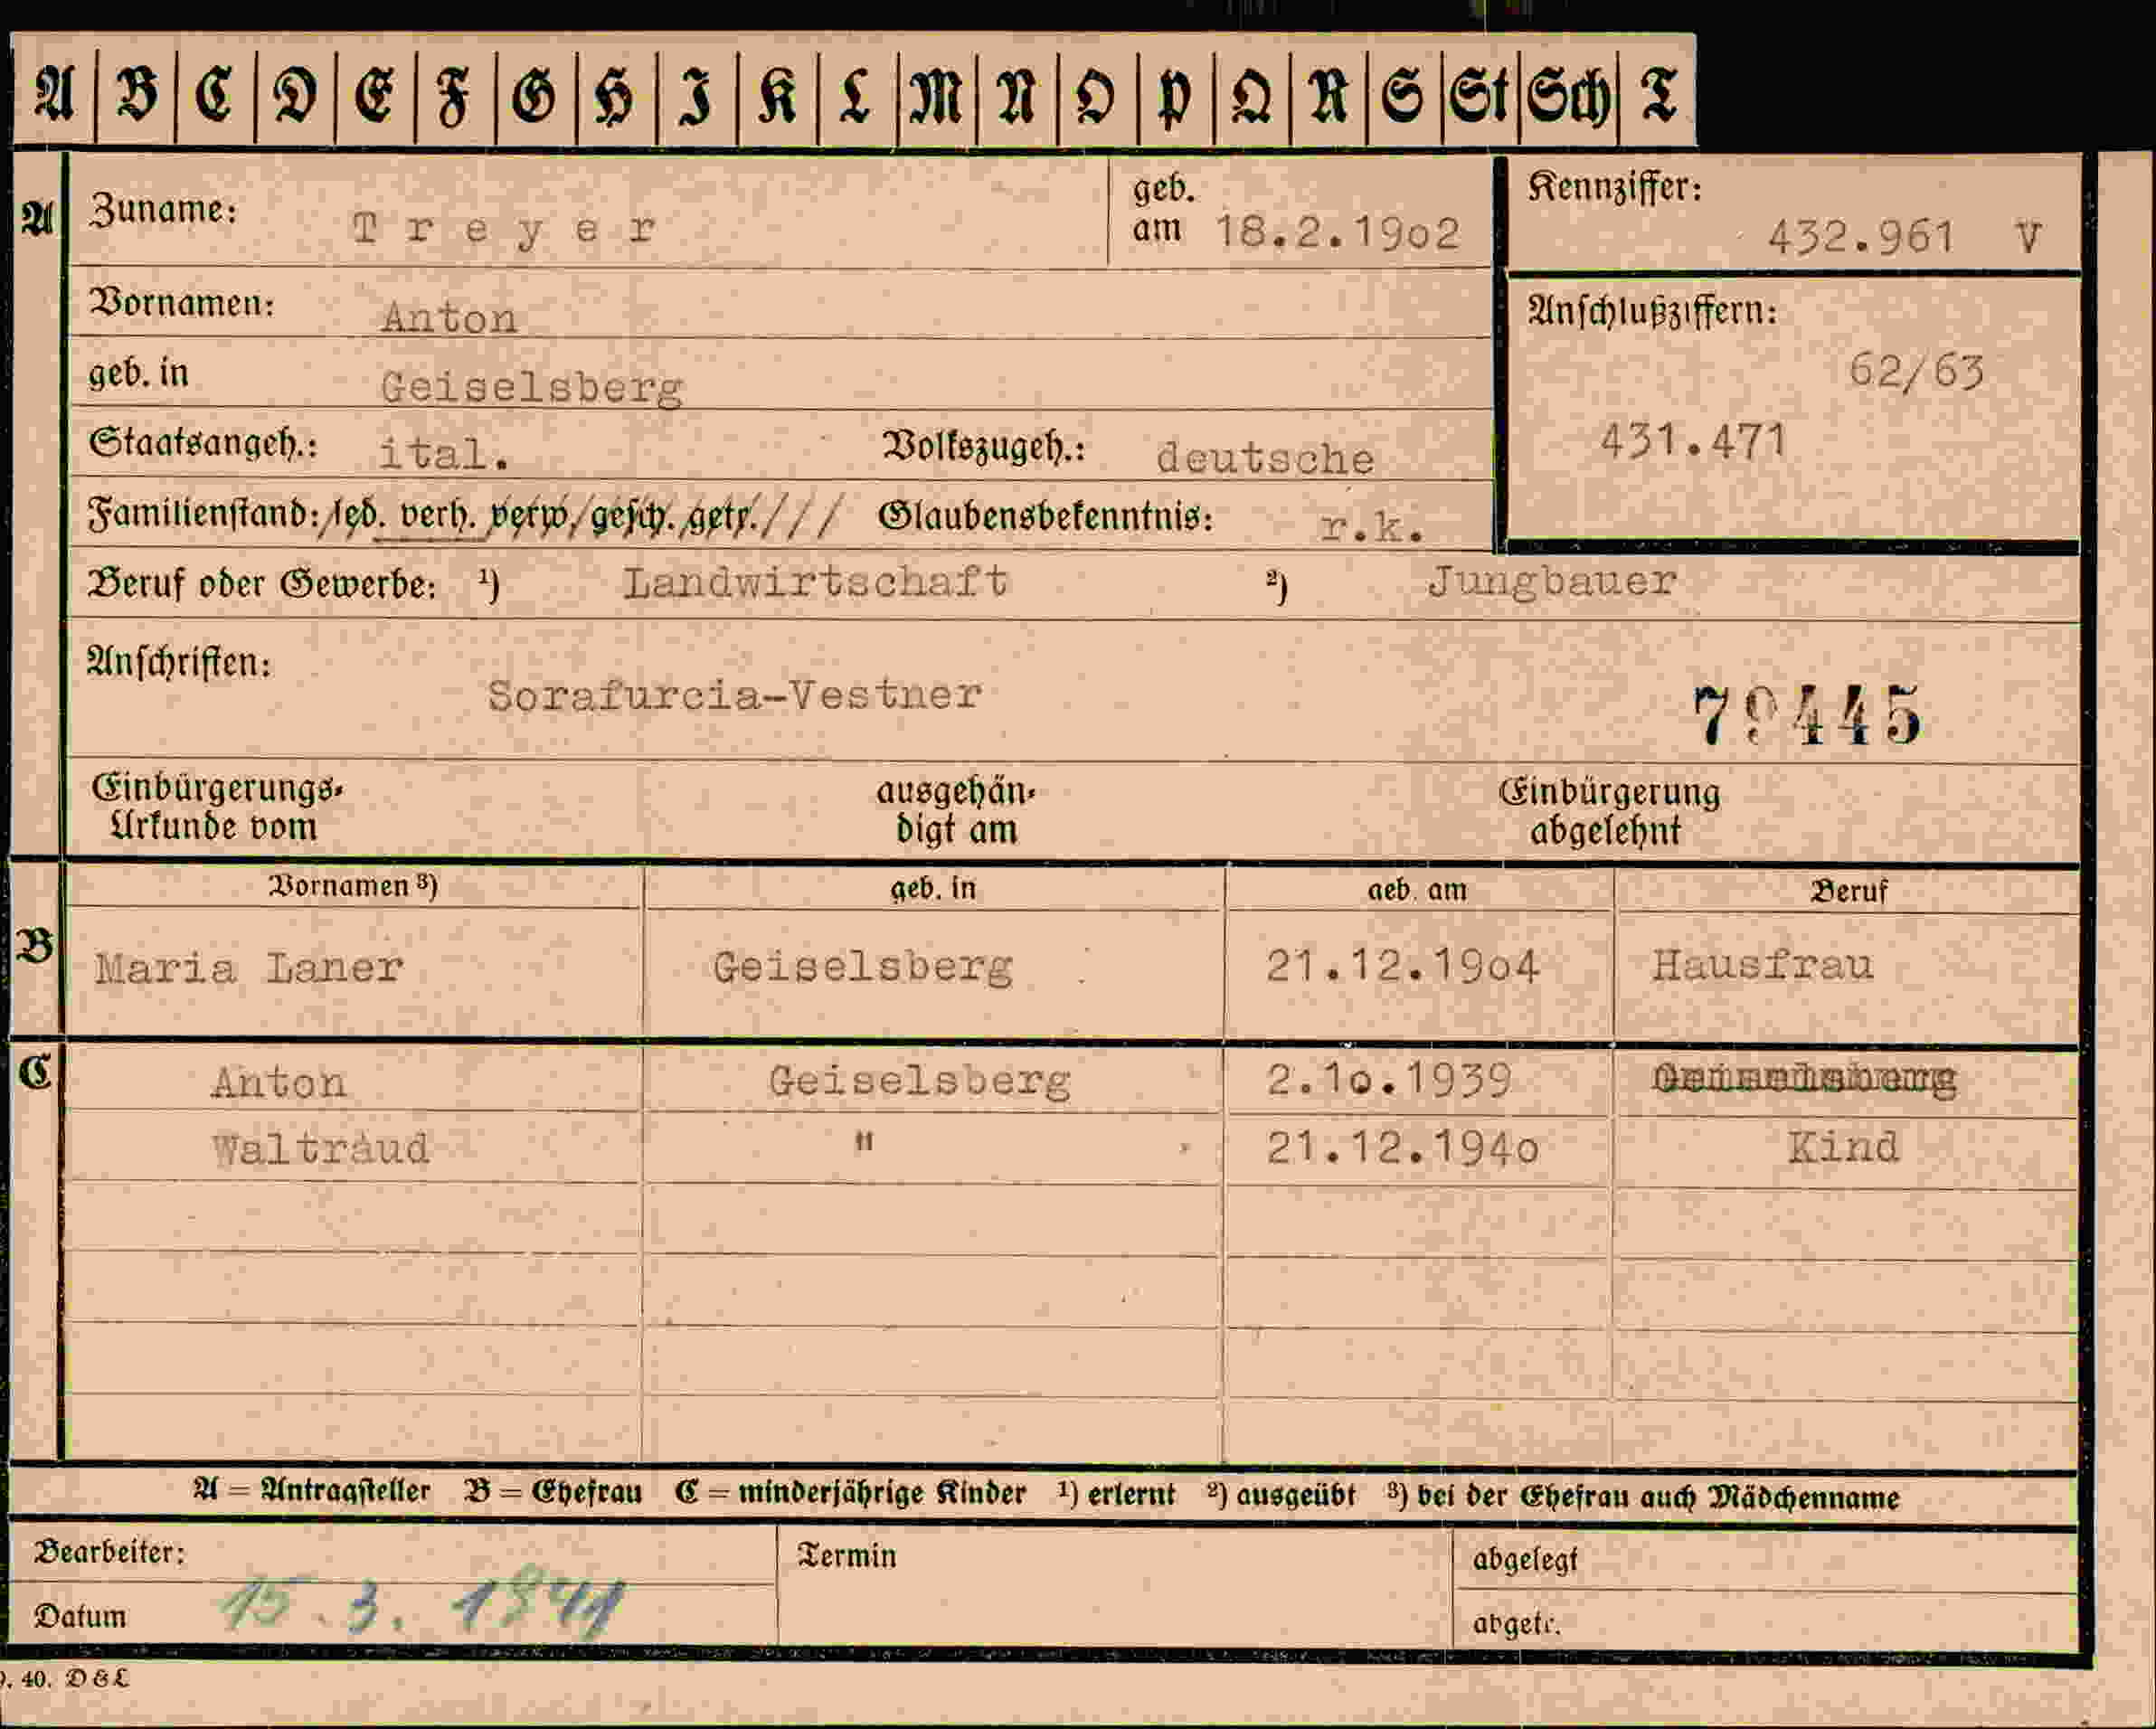 A B C D E F G H I K L M N O P Q R S St Sch T
A Zuname: Treyer geb. am 18.2.19o2 Kennziffer: 432.961 V
Vornamen: Anton Anschlußziffern:
62/63
geb. in Geiselsberg
Staatsangeh.: ital. Volkszugeh.: deutsche 431.471
Familienstand: led. verh. verw. gesch. getr. /// Glaubensbekenntnis: r.k.
Beruf oder Gewerbe: ¹) Landwirtschaft ²) Jungbauer
Anschriften:
Sorafurcia-Vestner 79445
Einbürgerungs- ausgehän- Einbürgerung
Urkunde vom digt am abgelehnt
Vornamen ³) geb. in geb. am Beruf
B Maria Laner Geiselsberg 21.12.19o4 Hausfrau
C Anton Geiselsberg 2.1o.1939 Geiselsberg
Waltraud " 21.12.194o Kind
A = Antragsteller B = Ehefrau C = minderjährige Kinder ¹) erlernt ²) ausgeübt ³) bei der Ehefrau auch Mädchenname
Bearbeiter: Termin abgelegt
Datum 15.3.1941 abgetr.
40. D&L